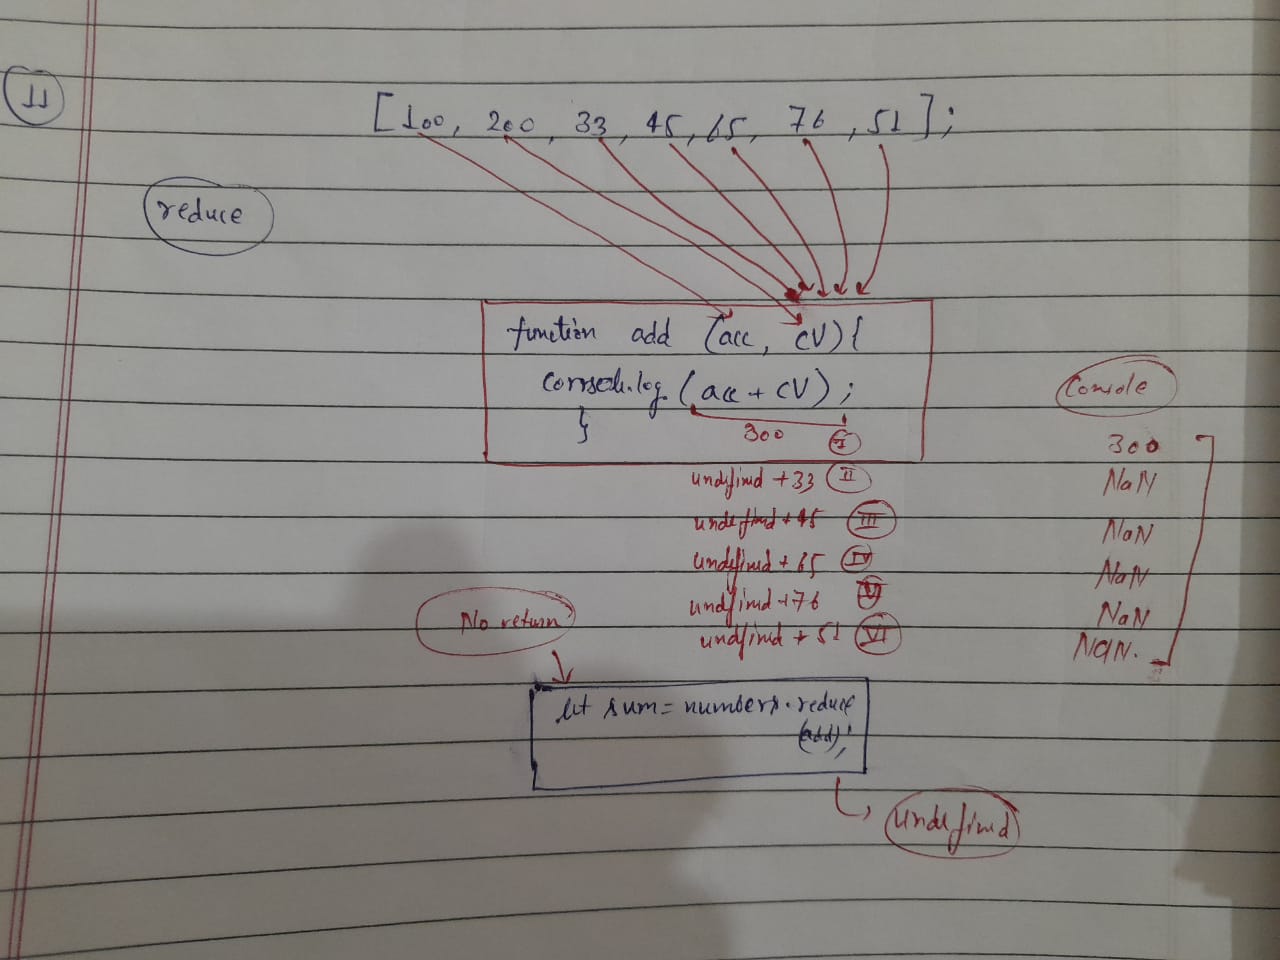 11
[100, 200, 33, 45, 65, 76, 51];
reduce
function add (acc, cV){
console.log (acc + cV);
}
300 I
undefined + 33 II
undefined + 45 III
undefined + 65 IV
undefined + 76 V
undefined + 51 VI
Console
300
NaN
NaN
NaN
NaN
NaN.
No return
let sum = numbers.reduce
(add);
undefined